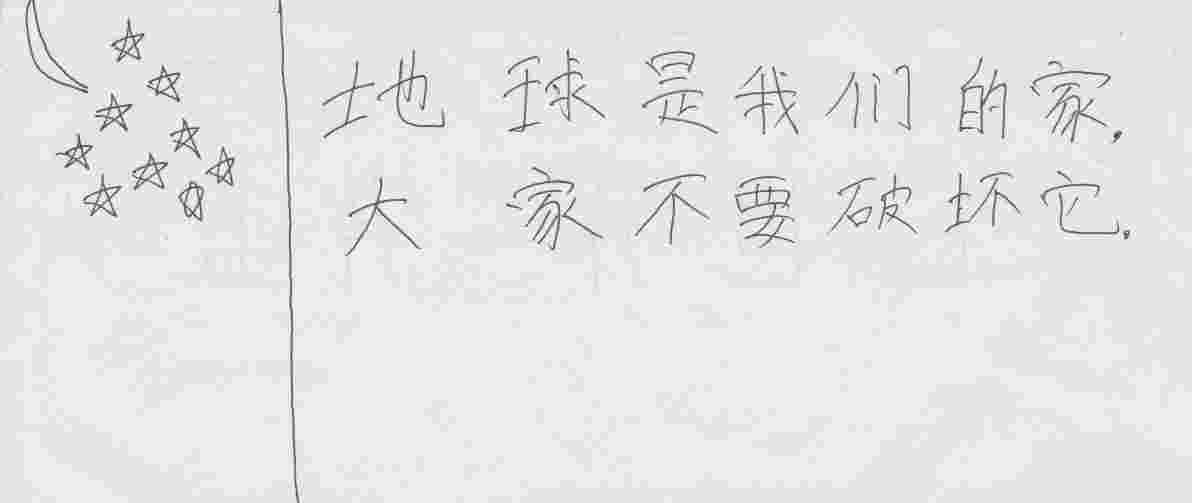 地球是我们的家.
大家不要破坏它.